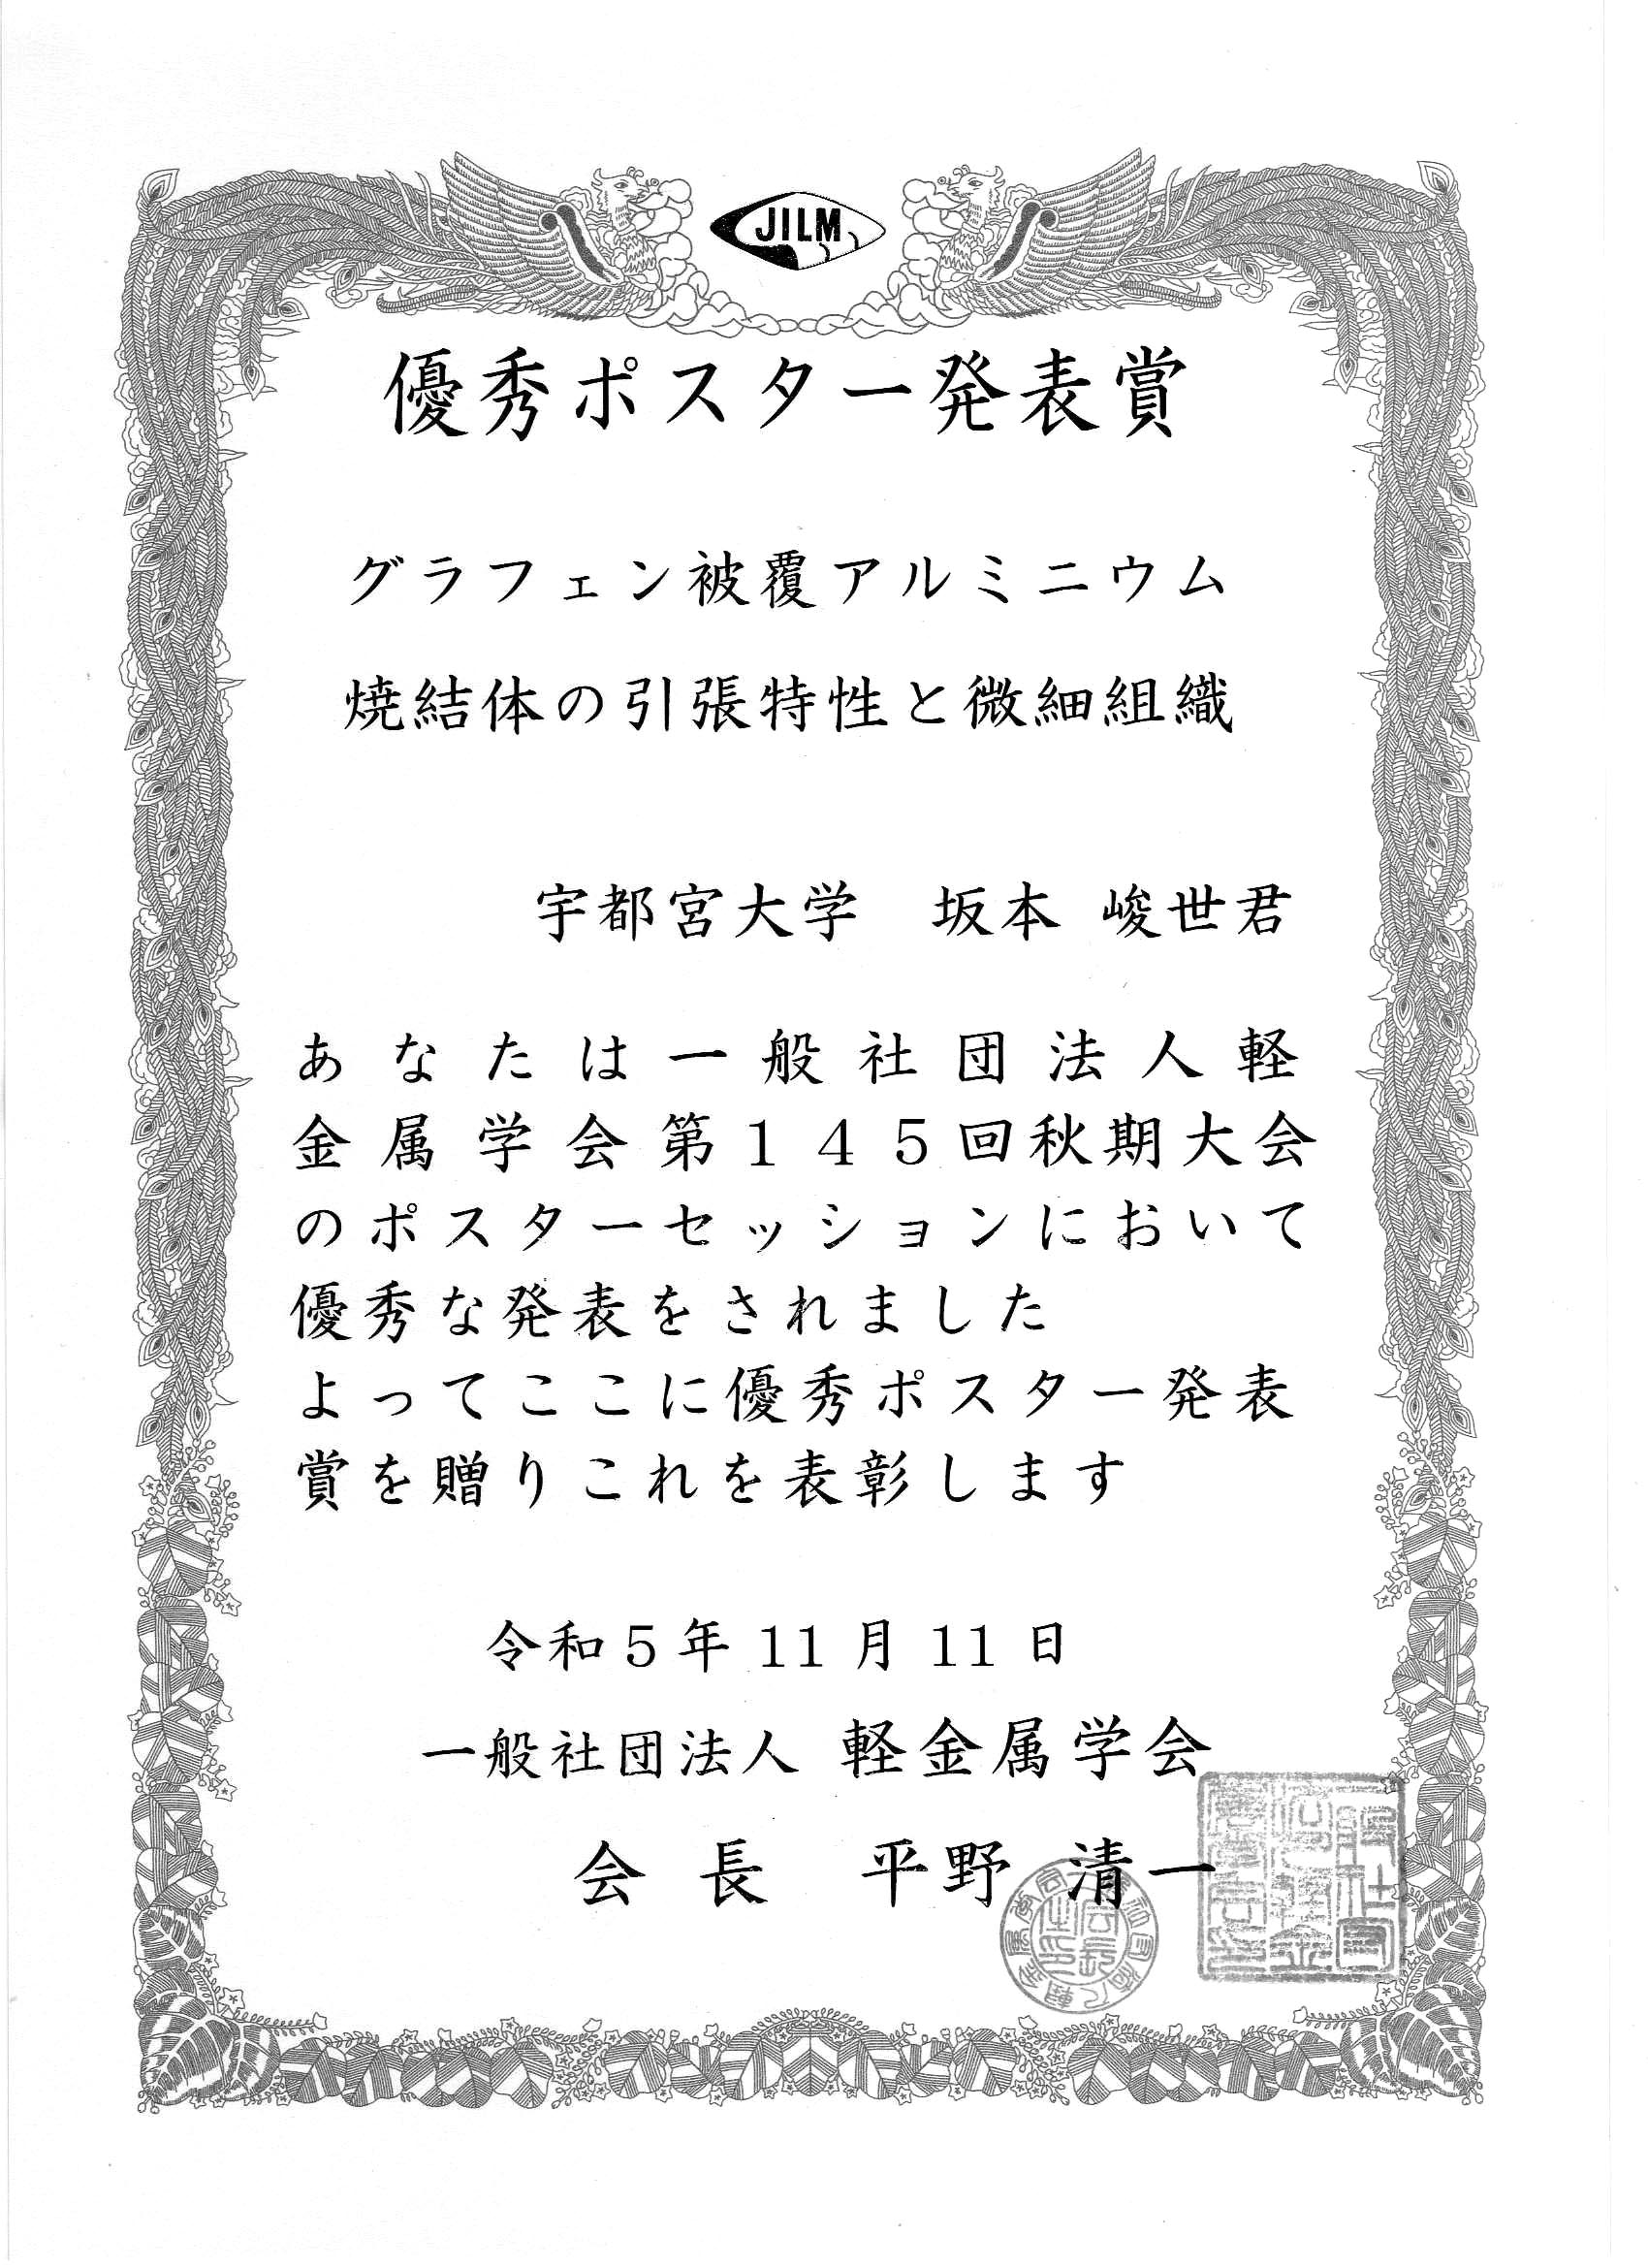 JILM
優秀ポスター発表賞
グラフェン被覆アルミニウム
焼結体の引張特性と微細組織
宇都宮大学　坂本 峻世君
あなたは一般社団法人軽
金属学会第１４５回秋期大会
のポスターセッションにおいて
優秀な発表をされました
よってここに優秀ポスター発表
賞を贈りこれを表彰します
令和５年 11 月 11 日
一般社団法人 軽金属学会
会 長　平野 清一